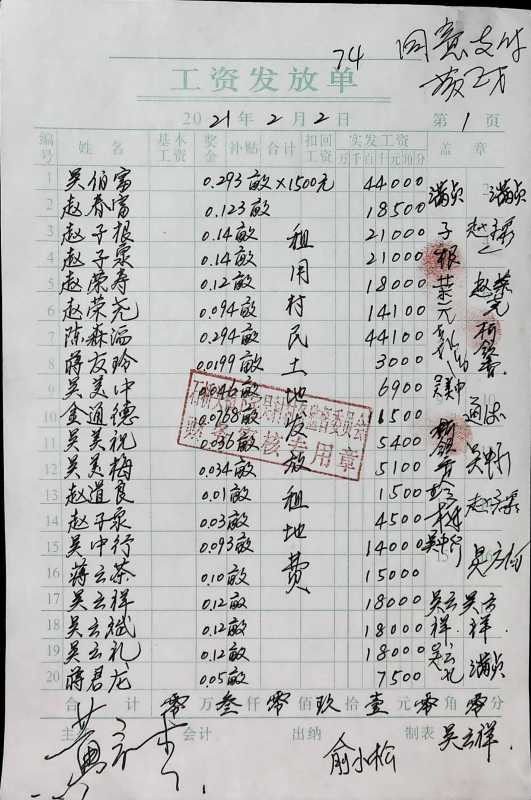 74 同意支付
工资发放单
2021年2月2日 第1页
编号 姓名 基本工资 奖金 补贴 合计 扣回工资 实发工资 万千百十元角分 盖章
1 吴伯富 0.293亩×1500元 44000 满贞 满贞
2 赵春富 0.123亩 18500
3 赵子根 0.14亩 21000 子根
4 赵子泉 0.14亩 21000
5 赵荣寿 0.12亩 18000 赵荣元
6 赵荣尧 0.094亩 14100
7 陈森温 0.294亩 44100
8 蒋友玲 0.0199亩 3000
9 吴美中 0.046亩 6900 吴美中
10 金通德 0.0768亩 1500 通德
11 吴美祝 0.036亩 5400
12 吴美梅 0.034亩 5100
13 赵道良 0.01亩 1500
14 赵子泉 0.03亩 4500
15 吴中行 0.093亩 14000 吴中行
16 蒋云茶 0.10亩 15000
17 吴云祥 0.12亩 18000 吴云祥 吴云祥
18 吴云斌 0.12亩 18000
19 吴云礼 0.12亩 18000 吴云礼
20 蒋君龙 0.05亩 7500 满贞
租用村民土地发放租地费
监督委员会
审核专用章
合计 零万叁仟零佰玖拾壹元零角零分
主管 会计 出纳 俞小松 制表 吴云祥